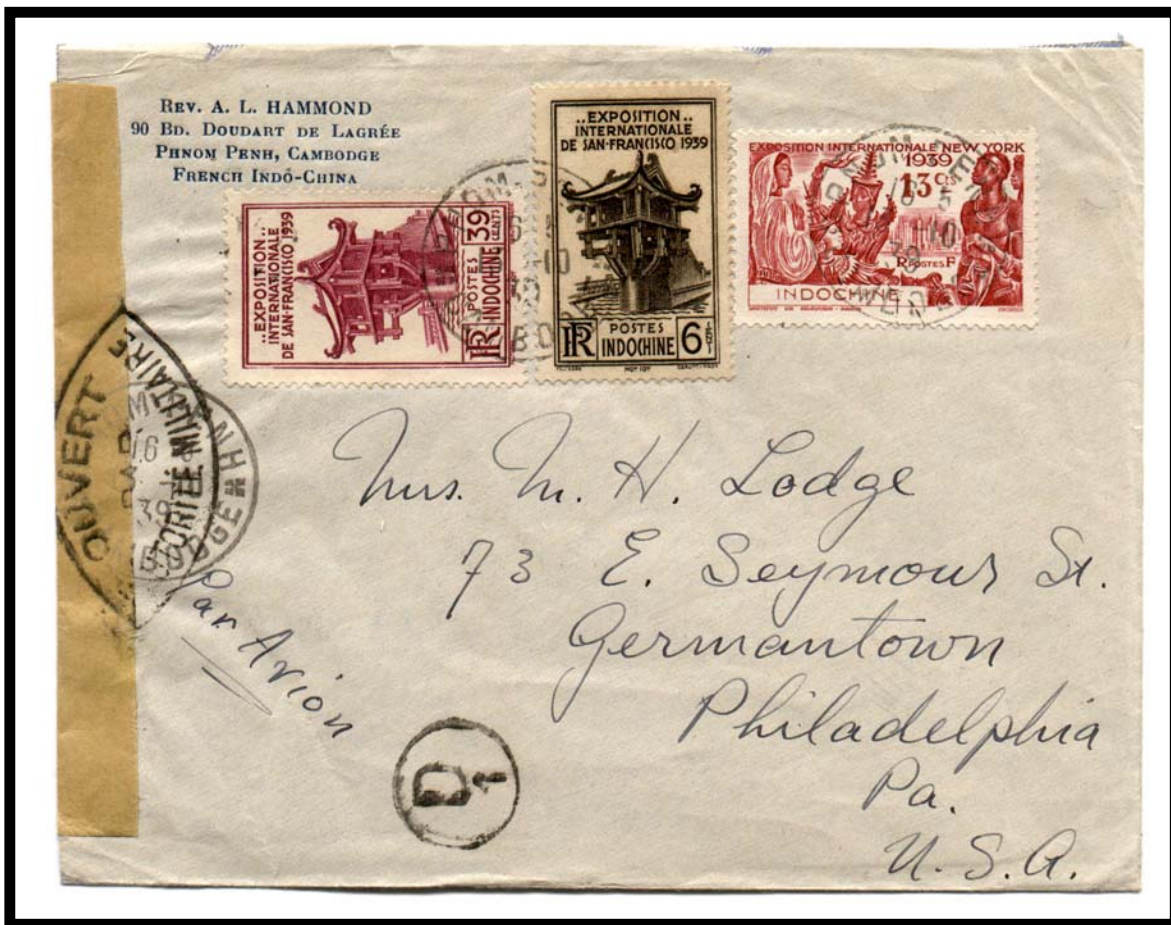 REV. A. L. HAMMOND
90 BD. DOUDART DE LAGRÉE
PHNOM PENH, CAMBODGE
FRENCH INDÔ-CHINA
..EXPOSITION..
INTERNATIONALE
DE SAN-FRANCISCO 1939
POSTES
INDOCHINE
39
CENTS
RF
..EXPOSITION..
INTERNATIONALE
DE SAN-FRANCISCO 1939
RF
POSTES
INDOCHINE
6
CENTS
EXPOSITION INTERNATIONALE NEW YORK
1939
13 Cts
R POSTES F
INDOCHINE
OUVERT
MILITAIRE
Par Avion
D
1
Mrs. M. H. Lodge
73 E. Seymour St.
Germantown
Philadelphia
Pa.
U.S.A.